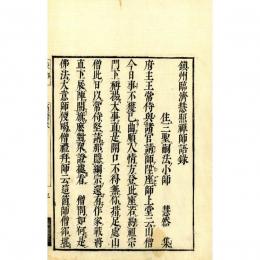 鎮州臨濟慧照禪師語錄
住三聖嗣法小師 慧然 集
府主王常侍與諸官請師陞座師上堂云山僧
今日事不獲已曲順人情方登此座若約祖宗
門下稱揚大事直是開口不得無你措足處山
僧此日以常侍堅請那隱綱宗還有作家戰將
直下展陣開旗麼對衆證據看 僧問如何是
佛法大意師便喝僧禮拜師云這箇師僧